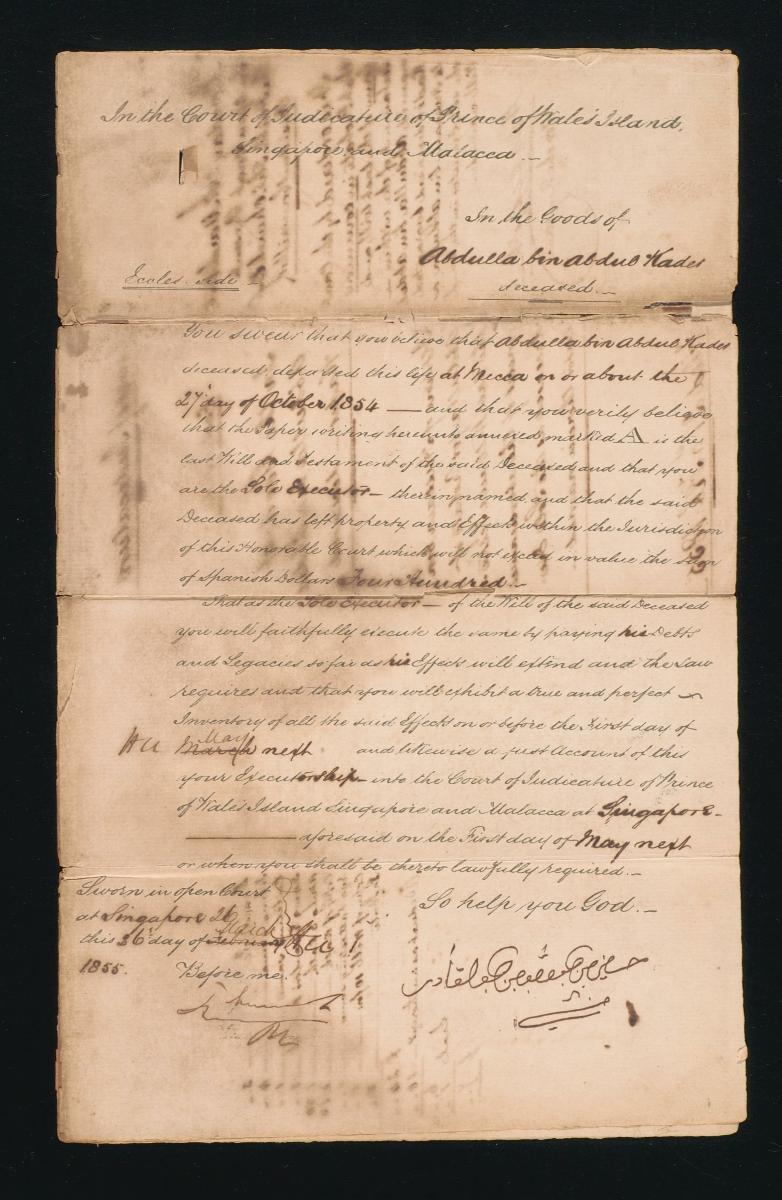 In the Court of Judicature of Prince of Wales Island,
Singapore and Malacca.—
In the Goods of
Abdulla bin Abdul Kader
deceased.—
Eccles. Side —
You swear that you believe that Abdulla bin Abdul Kader
deceased departed this life at Mecca on or about the
27 day of October 1854 — and that you verily believe
that the Paper writing hereunto annexed marked A is the
last Will and Testament of the said Deceased and that you
are the Sole Executor — therein named and that the said
Deceased has left property and Effects within the Jurisdiction
of this Honorable Court which will not exceed in value the sum
of Spanish Dollars Four Hundred.—
That as the Sole Executor — of the Will of the said Deceased
you will faithfully execute the same by paying his Debts
and Legacies so far as his Effects will extend and the Law
requires and that you will exhibit a true and perfect
Inventory of all the said Effects on or before the First day of
May
March next and likewise a just Account of this
your Executorship — into the Court of Judicature of Prince
of Wales Island Singapore and Malacca at Singapore —
— aforesaid on the First day of May next
or when you shall be thereto lawfully required.—
Sworn in open Court
at Singapore 26
March
this 26 day of February
1855. Before me.
So help you God.—